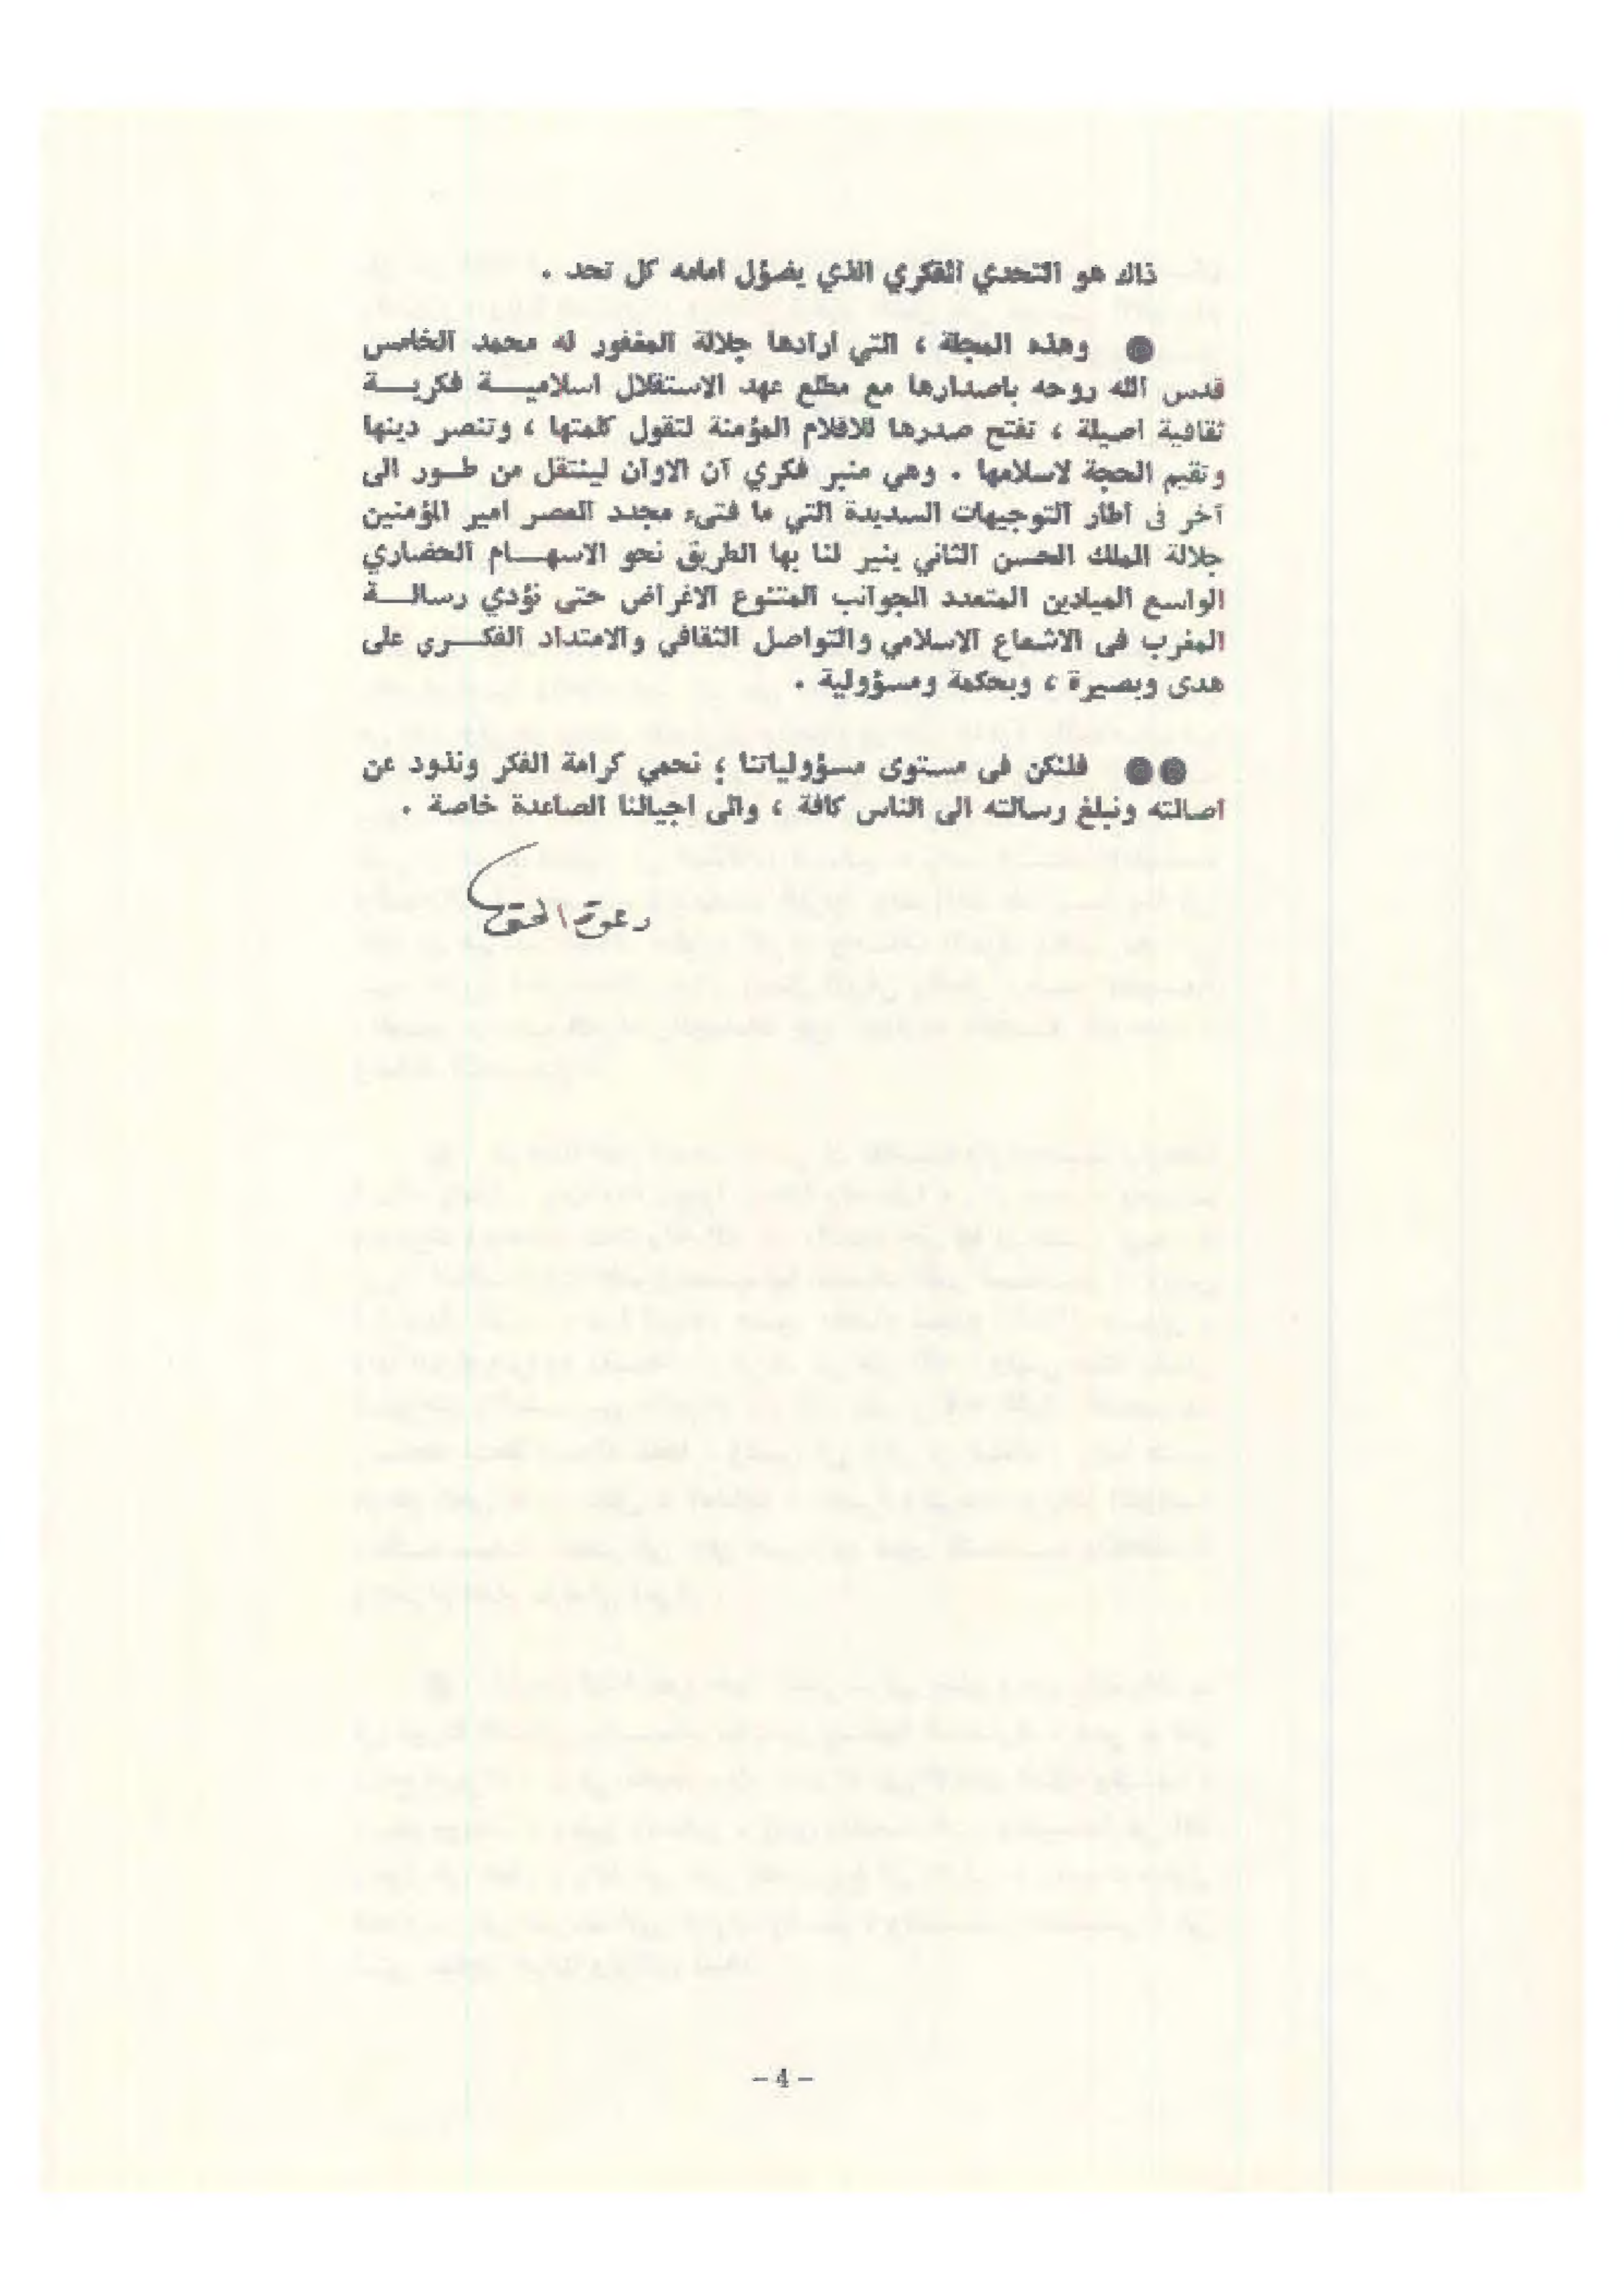 ذاك هو التحدي الفكري الذي يضؤل امامه كل تحد .
● وهذه المجلة ، التي ارادها جلالة المغفور له محمد الخامس
قدس الله روحه باصدارها مع مطلع عهد الاستقلال اسلاميــة فكريــة
ثقافية اصيلة ، تفتح صدرها للاقلام المؤمنة لتقول كلمتها ، وتنصر دينها
وتقيم الحجة لاسلامها . وهي منبر فكري آن الاوان لينتقل من طــور الى
آخر فى اطار التوجيهات السديدة التي ما فتىء مجدد العصر امير المؤمنين
جلالة الملك الحسن الثاني ينير لنا بها الطريق نحو الاسهــام الحضاري
الواسع الميادين المتعدد الجوانب المتنوع الاغراض حتى نؤدي رسالــة
المغرب فى الاشعاع الاسلامي والتواصل الثقافي والامتداد الفكــري على
هدى وبصيرة ، وبحكمة ومسؤولية .
●● فلنكن فى مستوى مسؤولياتنا ؛ نحمي كرامة الفكر ونذود عن
اصالته ونبلغ رسالته الى الناس كافة ، والى اجيالنا الصاعدة خاصة .
دعوة الحق
- 4 -